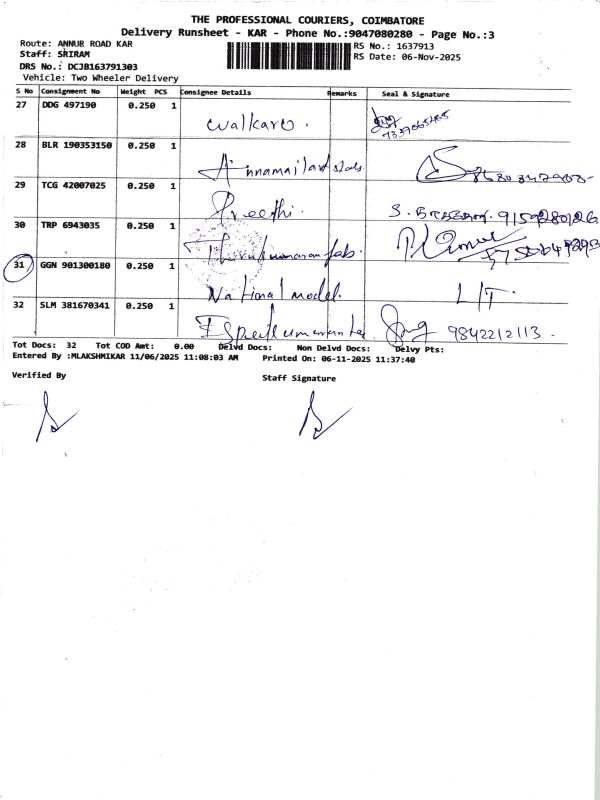 THE PROFESSIONAL COURIERS, COIMBATORE
Delivery Runsheet - KAR - Phone No.:9047080280 - Page No.:3
Route: ANNUR ROAD KAR RS No.: 1637913
Staff: SRIRAM RS Date: 06-Nov-2025
DRS No.: DCJB163791303
Vehicle: Two Wheeler Delivery
S No Consignment No Weight PCS Consignee Details Remarks Seal & Signature
27 DDG 497190 0.250 1
walkaro.
28 BLR 190353150 0.250 1
29 TCG 42007025 0.250 1
Preethi.
30 TRP 6943035 0.250 1
31 GGN 901300180 0.250 1
National model. L/T.
32 SLM 381670341 0.250 1
9842212113.
Tot Docs: 32 Tot COD Amt: 0.00 Delvd Docs: Non Delvd Docs: Delvy Pts:
Entered By :MLAKSHMIKAR 11/06/2025 11:08:03 AM Printed On: 06-11-2025 11:37:40
Verified By Staff Signature